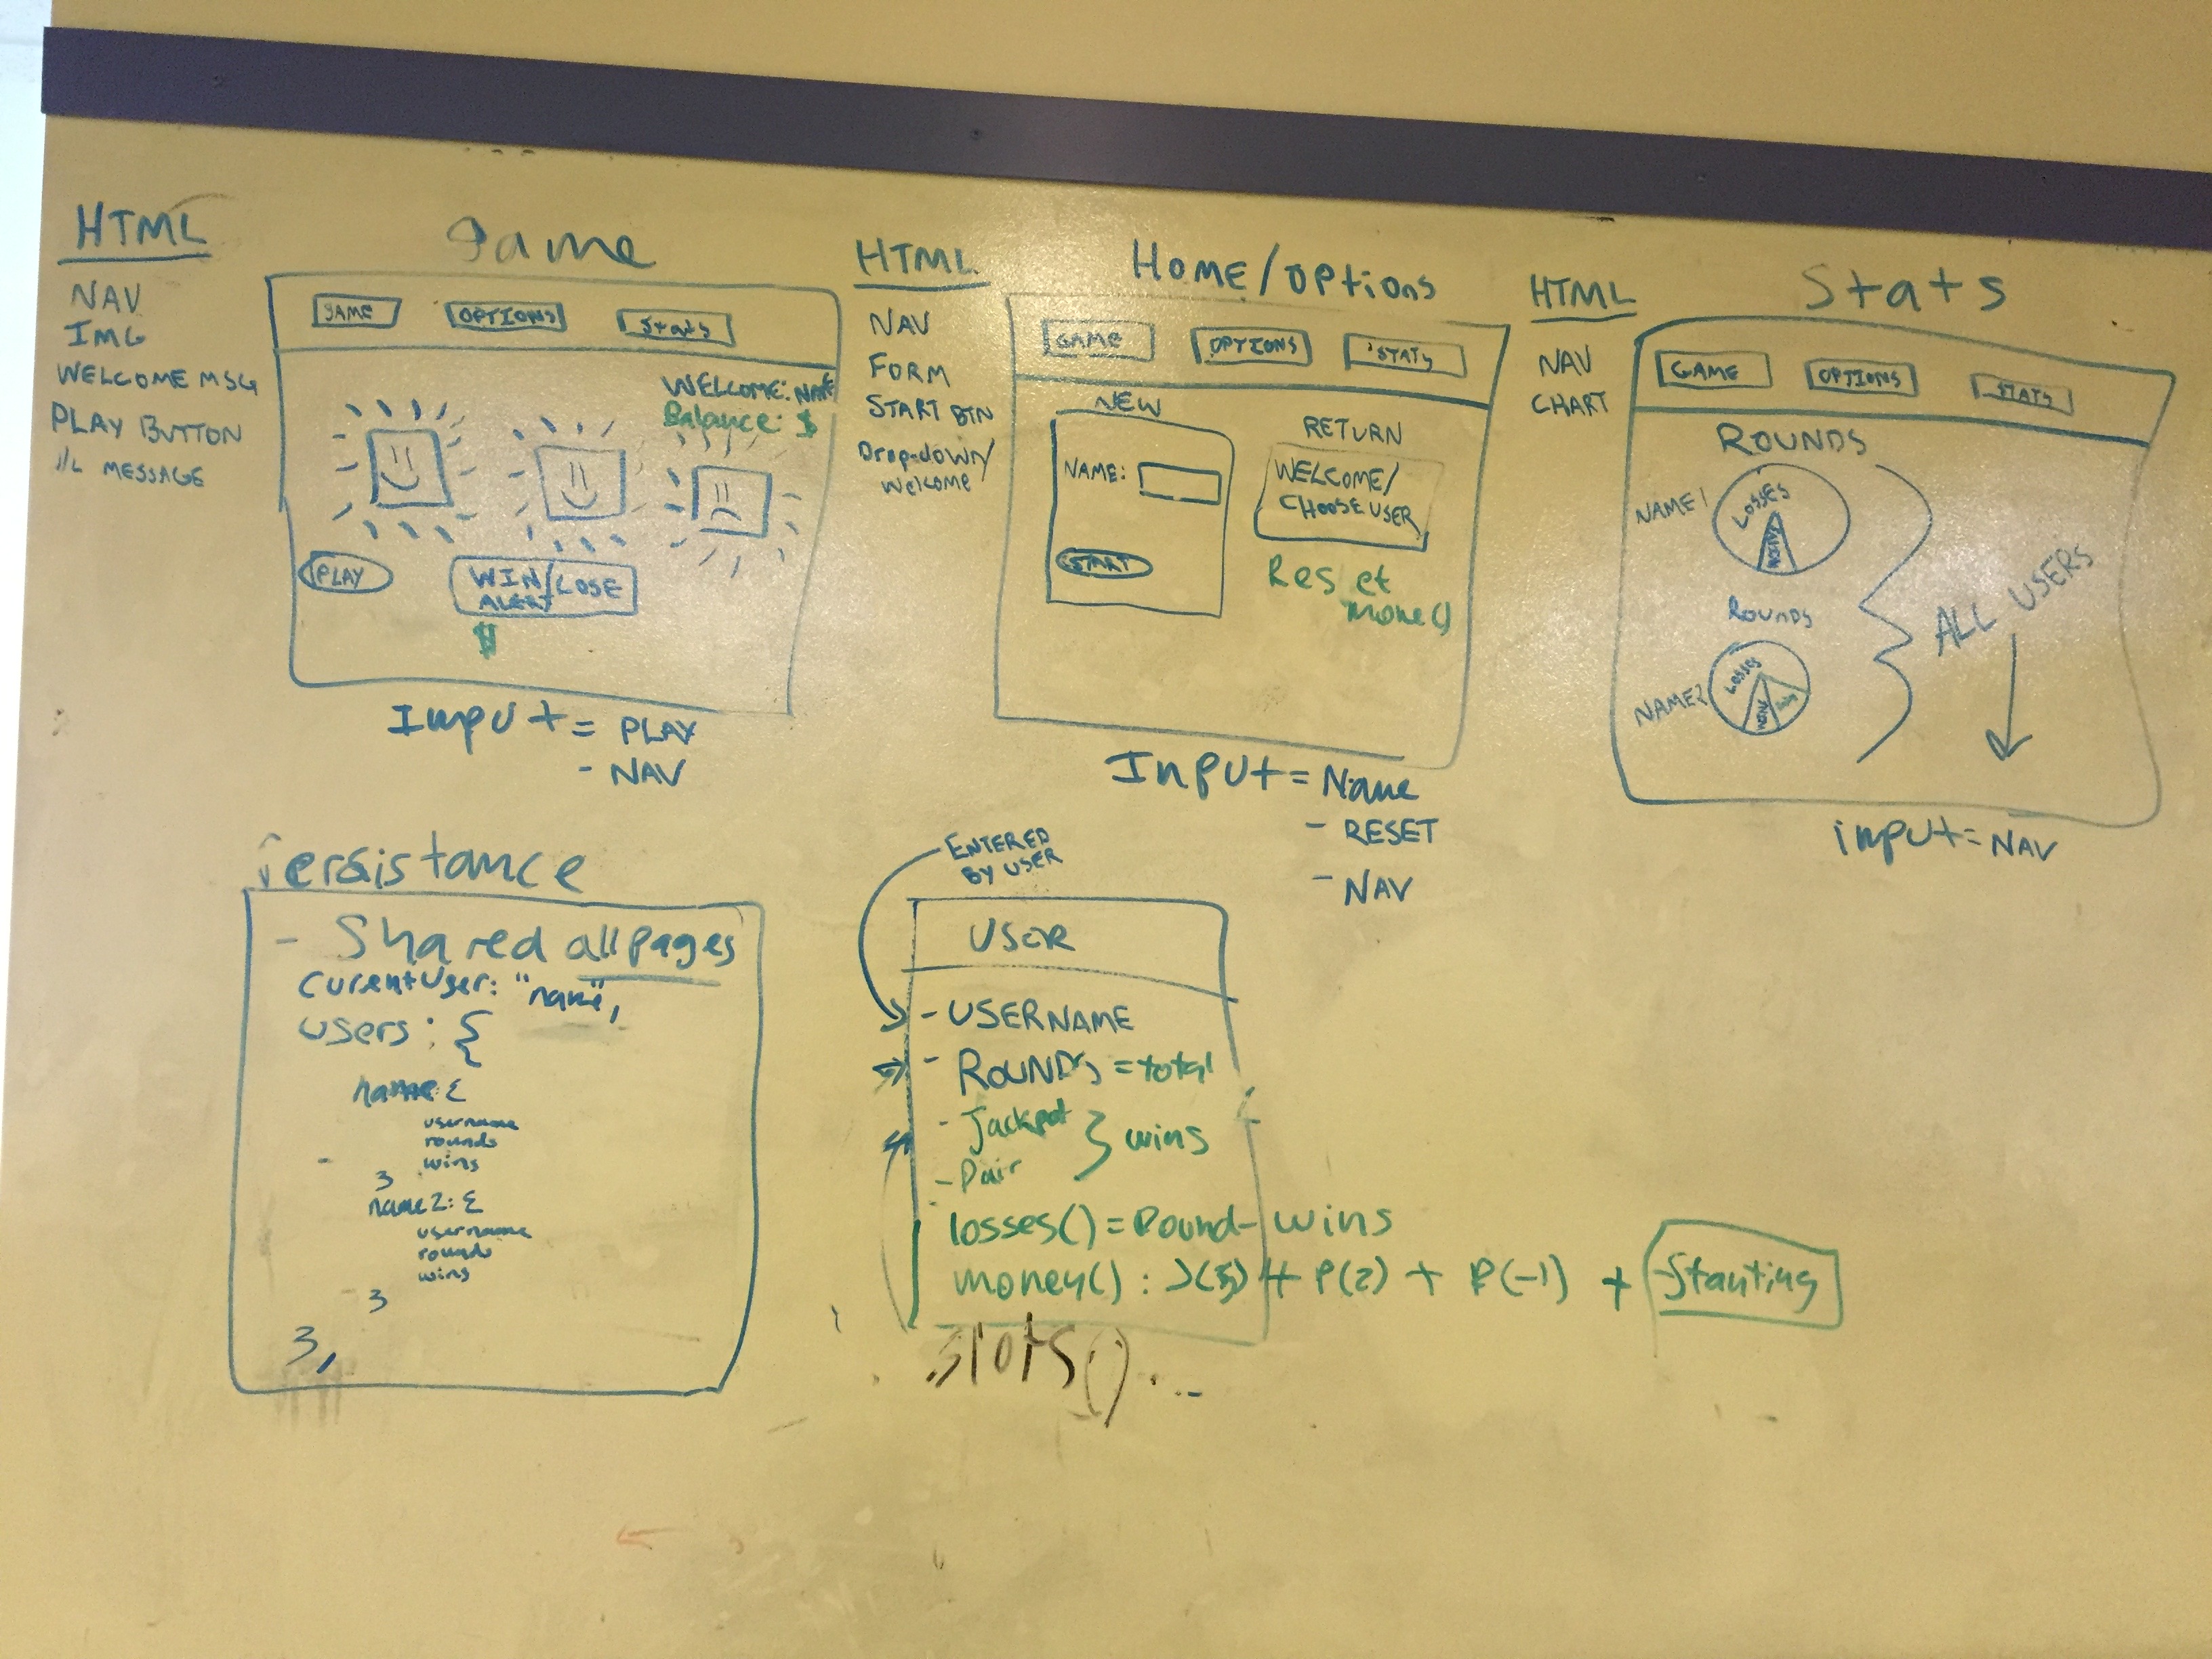 HTML
NAV
IMG
WELCOME MSG
PLAY BUTTON
MESSAGE
game
GAME
OPTIONS
Stats
WELCOME: NAME
Balance: $
PLAY
WIN/LOSE
ALERT
$
Input = PLAY
- NAV
HTML
NAV
FORM
START BTN
Drop-down/
Welcome
Home/Options
GAME
OPTIONS
STATS
NEW
NAME:
START
RETURN
WELCOME/
CHOOSE USER
Reset
Input = Name
- RESET
- NAV
HTML
NAV
CHART
Stats
GAME
OPTIONS
STATS
ROUNDS
NAME1
LOSSES
ROUNDS
NAME2
LOSSES
ALL USERS
input = NAV
Persistance
- Shared all pages
CurentUser: "name",
users: {
name: {
username
rounds
wins
}
name2: {
username
rounds
wins
}
},
ENTERED
BY USER
USER
- USERNAME
- ROUNDS = total
- Jackpot } wins
- Pair
losses() = Round - wins
money() : J(5) + P(2) + R(-1) + Starting
slots()...